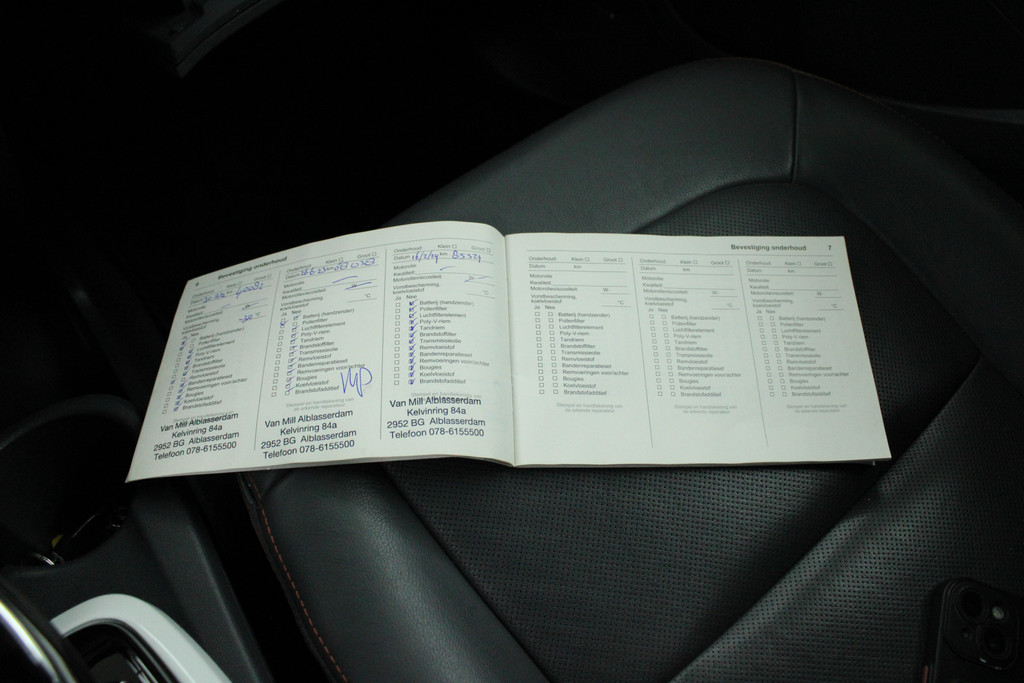 6 Bevestiging onderhoud
Onderhoud Klein ☐ Groot ☐
Datum km
Motorolie
Kwaliteit
Motorolieviscositeit
Vorstbescherming,
koelvloeistof °C
Ja Nee
Batterij (handzender)
Pollenfilter
Luchtfilterelement
Poly-V-riem
Tandriem
Brandstoffilter
Transmissieolie
Remvloeistof
Bandenreparatieset
Remvoeringen voor/achter
Bougies
Koelvloeistof
Brandstofadditief
Van Mill Alblasserdam
Kelvinring 84a
2952 BG Alblasserdam
Telefoon 078-6155500
Onderhoud Klein ☐ Groot ☐
Datum km
Motorolie
Kwaliteit
Motorolieviscositeit W-
Vorstbescherming,
koelvloeistof °C
Ja Nee
Batterij (handzender)
Pollenfilter
Luchtfilterelement
Poly-V-riem
Tandriem
Brandstoffilter
Transmissieolie
Remvloeistof
Bandenreparatieset
Remvoeringen voor/achter
Bougies
Koelvloeistof
Brandstofadditief
Stempel en handtekening van
de erkende reparateur
Van Mill Alblasserdam
Kelvinring 84a
2952 BG Alblasserdam
Telefoon 078-6155500
Onderhoud Klein ☐ Groot ☐
Datum km
Motorolie
Kwaliteit
Motorolieviscositeit W-
Vorstbescherming,
koelvloeistof °C
Ja Nee
Batterij (handzender)
Pollenfilter
Luchtfilterelement
Poly-V-riem
Tandriem
Brandstoffilter
Transmissieolie
Remvloeistof
Bandenreparatieset
Remvoeringen voor/achter
Bougies
Koelvloeistof
Brandstofadditief
Stempel en handtekening van
de erkende reparateur
Van Mill Alblasserdam
Kelvinring 84a
2952 BG Alblasserdam
Telefoon 078-6155500
Bevestiging onderhoud 7
Onderhoud Klein ☐ Groot ☐
Datum km
Motorolie
Kwaliteit
Motorolieviscositeit W-
Vorstbescherming,
koelvloeistof °C
Ja Nee
Batterij (handzender)
Pollenfilter
Luchtfilterelement
Poly-V-riem
Tandriem
Brandstoffilter
Transmissieolie
Remvloeistof
Bandenreparatieset
Remvoeringen voor/achter
Bougies
Koelvloeistof
Brandstofadditief
Stempel en handtekening van
de erkende reparateur
Onderhoud Klein ☐ Groot ☐
Datum km
Motorolie
Kwaliteit
Motorolieviscositeit W-
Vorstbescherming,
koelvloeistof °C
Ja Nee
Batterij (handzender)
Pollenfilter
Luchtfilterelement
Poly-V-riem
Tandriem
Brandstoffilter
Transmissieolie
Remvloeistof
Bandenreparatieset
Remvoeringen voor/achter
Bougies
Koelvloeistof
Brandstofadditief
Stempel en handtekening van
de erkende reparateur
Onderhoud Klein ☐ Groot ☐
Datum km
Motorolie
Kwaliteit
Motorolieviscositeit W-
Vorstbescherming,
koelvloeistof °C
Ja Nee
Batterij (handzender)
Pollenfilter
Luchtfilterelement
Poly-V-riem
Tandriem
Brandstoffilter
Transmissieolie
Remvloeistof
Bandenreparatieset
Remvoeringen voor/achter
Bougies
Koelvloeistof
Brandstofadditief
Stempel en handtekening van
de erkende reparateur